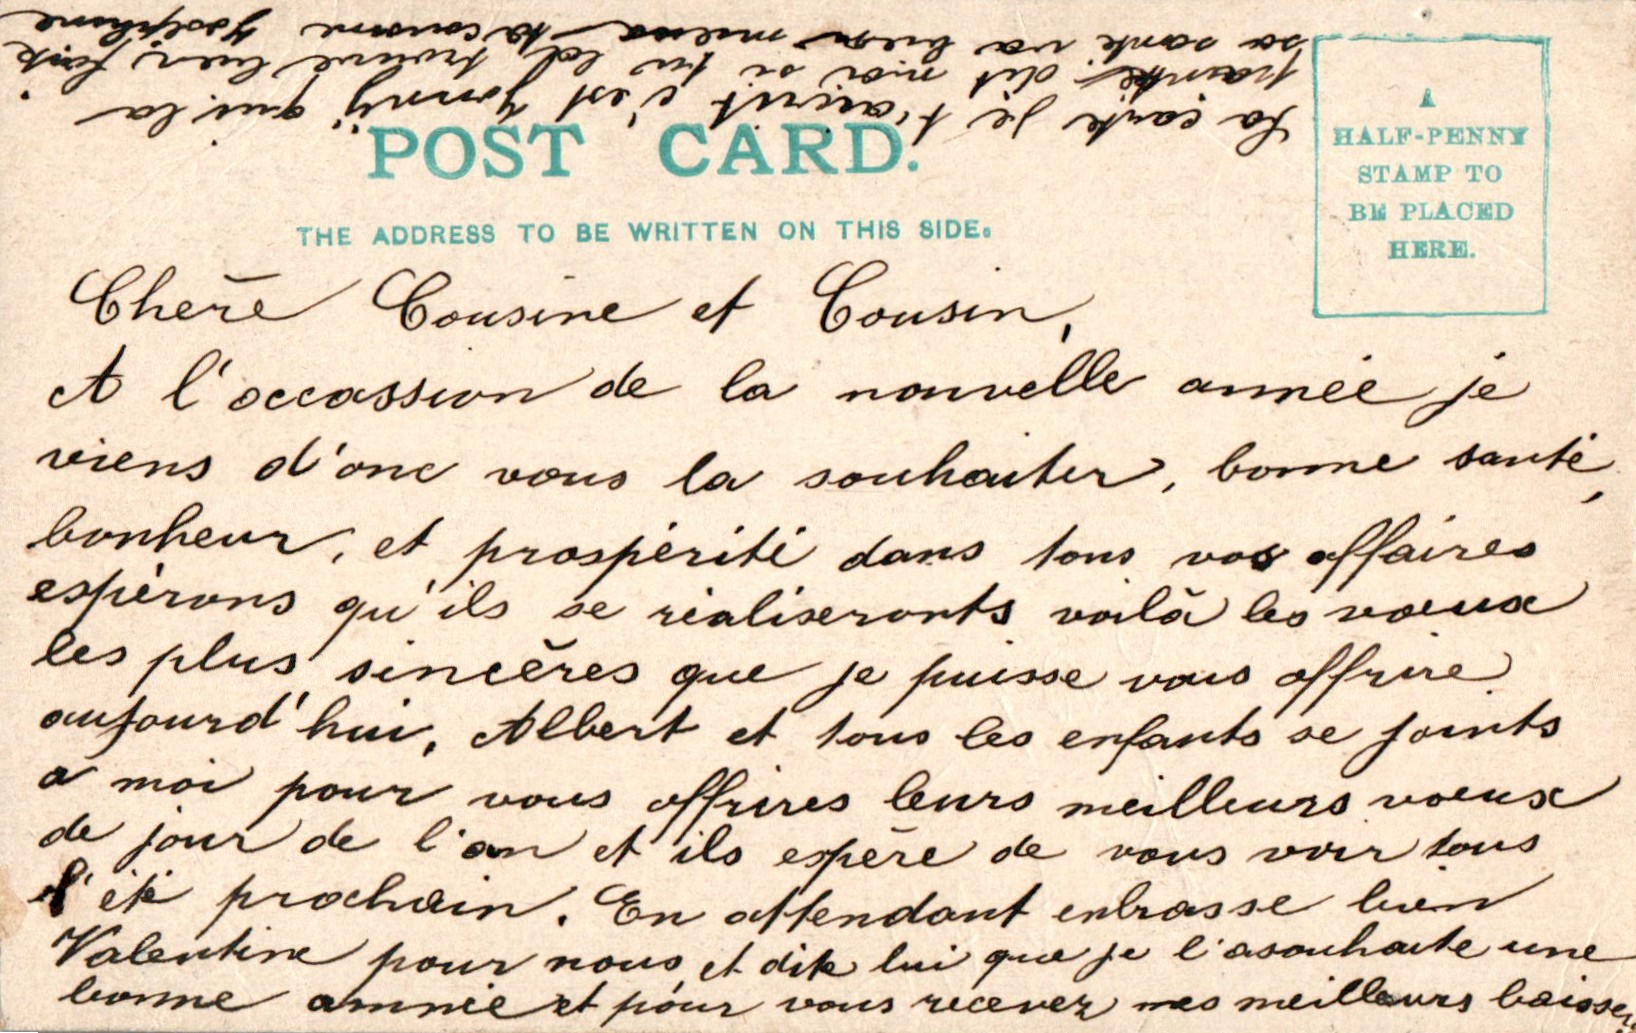 POST CARD.
THE ADDRESS TO BE WRITTEN ON THIS SIDE.
HALF-PENNY
STAMP TO
BE PLACED
HERE.
Chère Cousine et Cousin,
A l'occassion de la nouvelle année je
viens d'onc vous la souhaiter, bonne santé,
bonheur, et prospérité dans tous vos affaires
espérons qu'ils se réaliseronts voilà les voeux
les plus sincères que je puisse vous offrire
aujourd'hui, Albert et tous les enfants se joints
a moi pour vous offrires leurs meilleurs voeux
de jour de l'an et ils espère de vous voir tous
l'été prochain. En attendant enbrasse bien
Valentine pour nous et dite lui que je l'asouhaite une
bonne amnée et pour vous recevez mes meilleurs baisser
La carte je t'aicrit c'est Yonny qui la
painte, dit moi si tu la trouve bien faite
sa sante va bien mieux ta cousine Joséphine